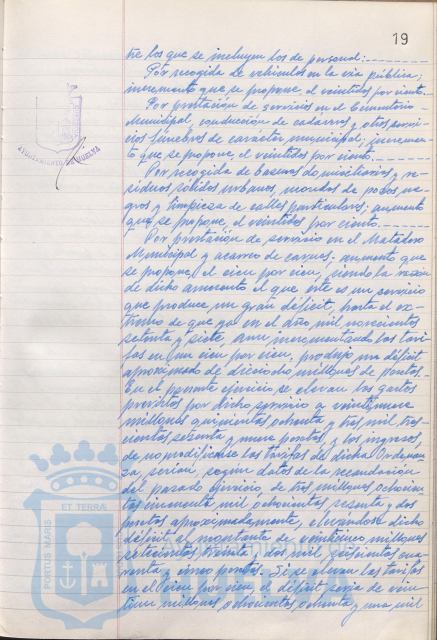 19
tre los que se incluyen los de personal:
Por recogida de vehículos en la vía pública;
incremento que se propone, el veintidos por ciento.
Por prestación de servicios en el Cementerio
Municipal, conducción de cadáveres y otros servi-
cios fúnebres de carácter municipal; incremen-
to que se propone, el veintidos por ciento.
Por recogida de basuras domiciliarias y re-
siduos sólidos urbanos, mondas de pozos ne-
gros y limpieza de calles particulares; aumento
que se propone el veintidos por ciento.
Por prestación de servicio en el Matadero
Municipal y acarreo de carnes; aumento que
se propone, el cien por cien, siendo la razón
de dicho aumento el que éste es un servicio
que produce un gran déficit, hasta el ex-
tremo de que ya en el año mil novecientos
setenta y siete, aun incrementando las tari-
fas en un cien por cien, produjo un déficit
aproximado de dieciocho millones de pesetas.-
En el presente ejercicio se elevan los gastos
previstos por dicho servicio a veintinueve
millones quinientas ochenta y tres mil tres-
cientas sesenta y nueve pesetas, y los ingresos,
de no modificarse las tarifas del dicha Ordenan-
za, serían, según datos de la recaudación
del pasado ejercicio, de tres millones ochocien-
tas cincuenta mil, ochocientas sesenta y dos
pesetas aproximadamente, elevandose dicho
déficit al montante de veinticinco millones
setecientas treinta y dos mil quinientas cua-
renta y cinco pesetas. Si se elevan las tarifas
en el cien por cien, el déficit sería de vein-
tiun millones, ochocientas, ochenta y una mil
AYUNTAMIENTO DE HUELVA
PORTUS MARIS ET TERRAE